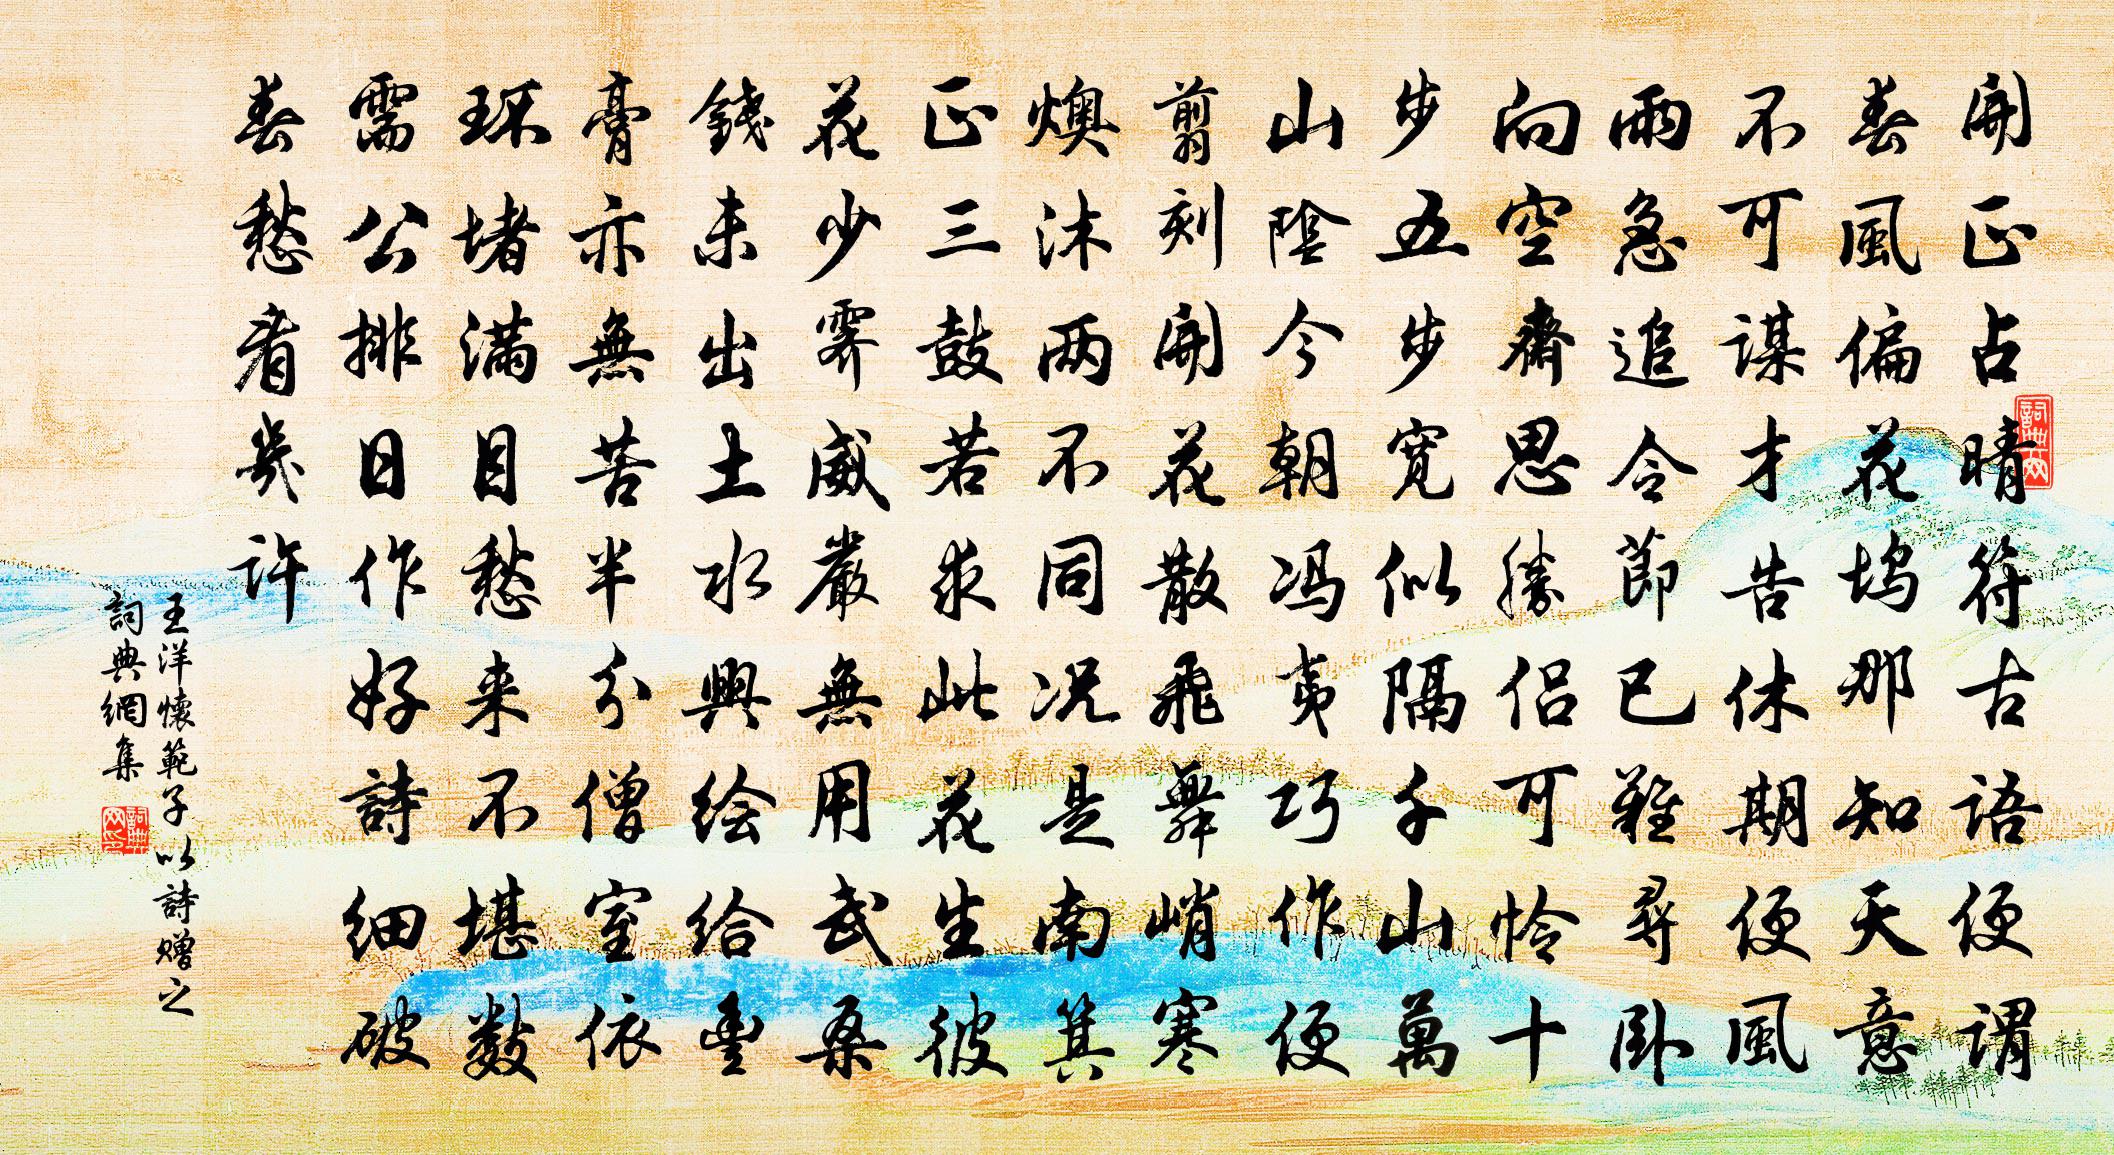 開正占晴符古语便谓
春風偏花坞那知天意
不可谋才告休期便風
雨急追令節已難尋卧
向空齋思勝侣可怜十
步五步宽似隔千山萬
山陰今朝冯夷巧作便
剪刻開花散飛舞峭寒
燠沐两不同况是南箕
正三鼓若求此花生彼
花少霁威嚴無用武桑
錢未出土水興绘给豊
膏亦無苦半分僧室依
环堵满目愁来不堪数
需公排日作好詩细破
春愁看幾許
王洋懷範子以詩赠之
詞典網集